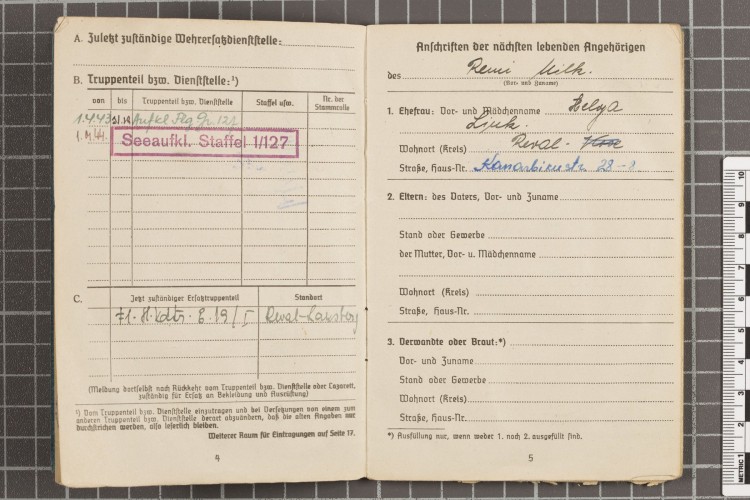 A. Zuletzt zuständige Wehrersatzdienststelle:
B. Truppenteil bzw. Dienststelle:¹)
von bis Truppenteil bzw. Dienststelle Staffel usw. Nr. der Stammrolle
1.4.43 Aufkl. Flg. Gr. 127
Seeaufkl. Staffel 1/127
C. Jetzt zuständiger Ersatztruppenteil Standort
Fl. H. Kdtr. E. 19/I Reval-Laksberg
(Meldung dortselbst nach Rückkehr vom Truppenteil bzw. Dienststelle oder Lazarett,
zuständig für Ersatz an Bekleidung und Ausrüstung)
¹) Vom Truppenteil bzw. Dienststelle einzutragen und bei Versetzungen von einem zum
anderen Truppenteil bzw. Dienststelle derart abzuändern, daß die alten Angaben nur
durchstrichen werden, also leserlich bleiben.
Weiterer Raum für Eintragungen auf Seite 17.
4
Anschriften der nächsten lebenden Angehörigen
des Remi Milk.
(Vor- und Zuname)
1. Ehefrau: Vor- und Mädchenname Helga
Wohnort (Kreis) Reval.
Straße, Haus-Nr. 28-
2. Eltern: des Vaters, Vor- und Zuname
Stand oder Gewerbe
der Mutter, Vor- u. Mädchenname
Wohnort (Kreis)
Straße, Haus-Nr.
3. Verwandte oder Braut:*)
Vor- und Zuname
Stand oder Gewerbe
Wohnort (Kreis)
Straße, Haus-Nr.
*) Ausfüllung nur, wenn weder 1. noch 2. ausgefüllt sind.
5
METRIC 1 2 3 4 5 6 7 8 9 10